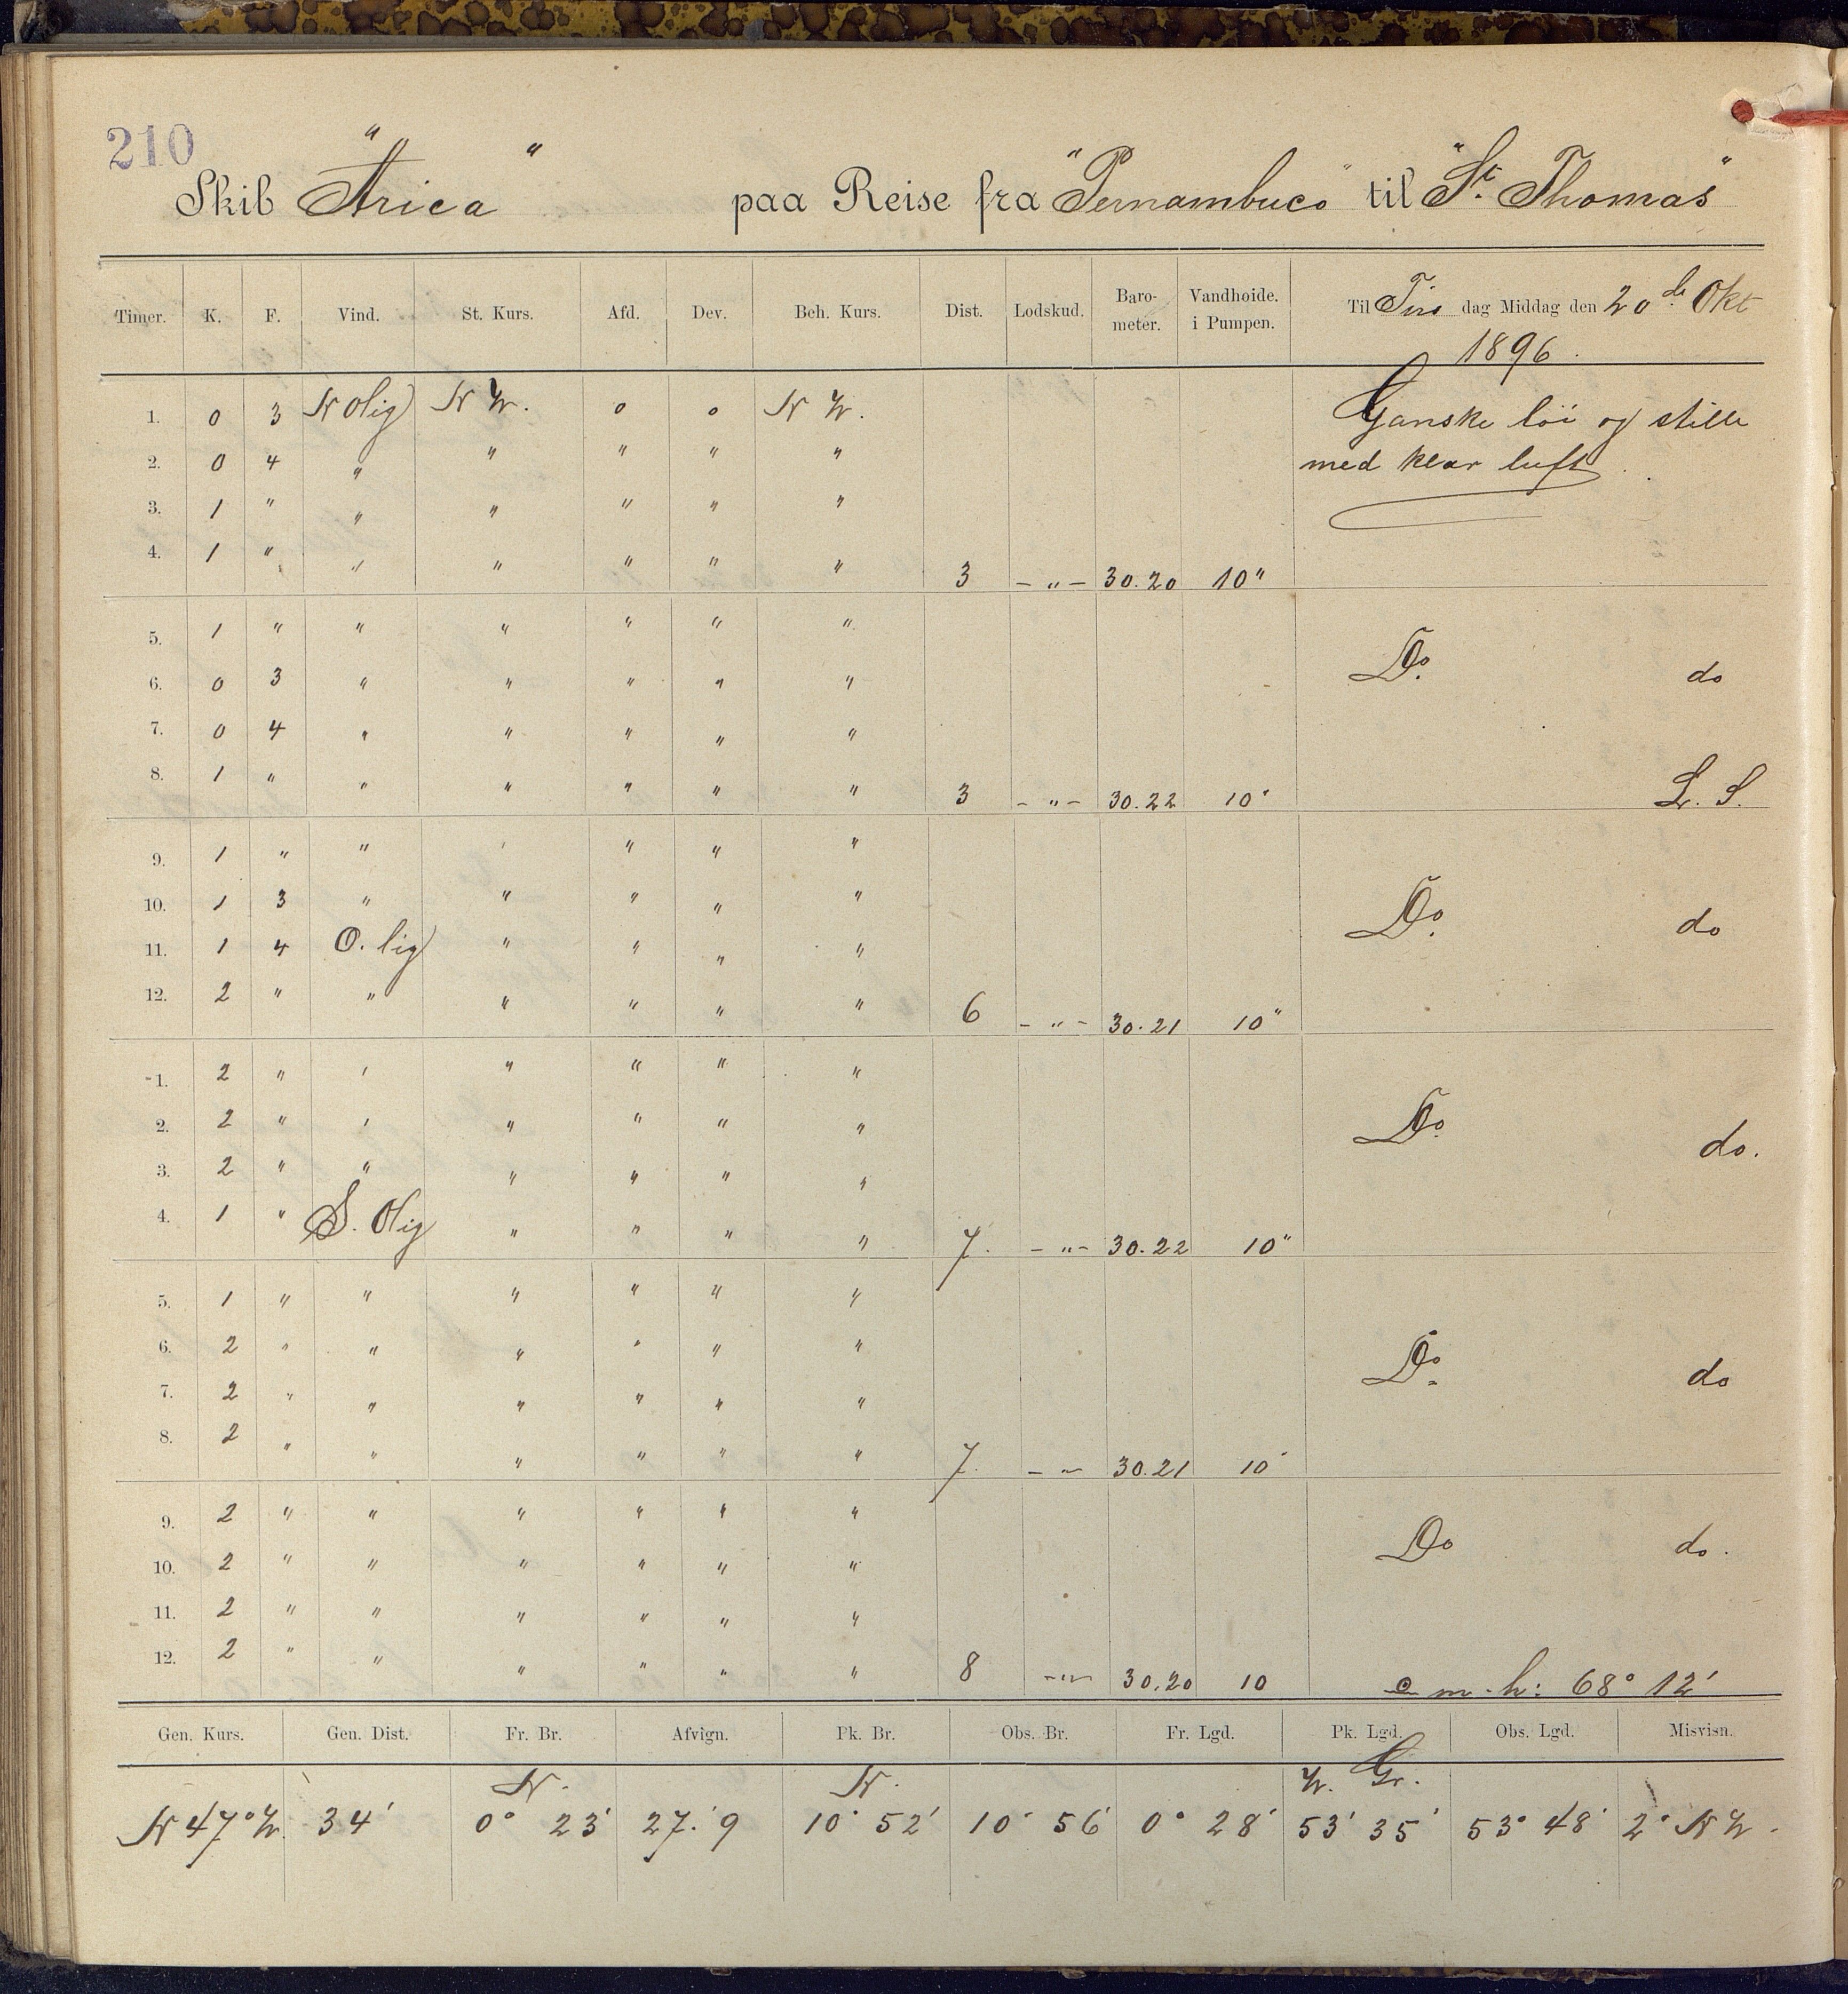 210
Skib "Arica" paa Reise fra "Pernambuco" til "St. Thomas"
Timer. K. F. Vind. St. Kurs. Afd. Dev. Beh. Kurs. Dist. Lodskud. Baro-meter. Vandhoide. i Pumpen. Til Tirs dag Middag den 20de Okt
1896.
1. 0 3 N Olig N W. 0 0 N W. Ganske löi og stille
2. 0 4 " " " " " med klar luft.
3. 1 " " " " " "
4. 1 " " " " " " 3 - " - 30.20 10"
5. 1 " " " " " "
6. 0 3 " " " " " Do. do
7. 0 4 " " " " "
8. 1 " " " " " " 3 - " - 30.22 10" L. S.
9. 1 " " " " " "
10. 1 3 " " " " " Do. do
11. 1 4 O. lig " " " "
12. 2 " " " " " " 6 - " - 30.21 10"
1. 2 " " " " " "
2. 2 " " " " " " Do. do.
3. 2 " " " " " "
4. 1 " S. Olig " " " " 7. - " - 30.22 10"
5. 1 " " " " " "
6. 2 " " " " " " Do. do
7. 2 " " " " " "
8. 2 " " " " " " 7. - " - 30.21 10"
9. 2 " " " " " "
10. 2 " " " " " " Do do.
11. 2 " " " " " "
12. 2 " " " " " " 8 - " - 30.20 10 ⊙ m. h: 68° 12'
Gen. Kurs. Gen. Dist. Fr. Br. Afvign. Pk. Br. Obs. Br. Fr. Lgd. Pk. Lgd. Obs. Lgd. Misvisn.
N. N. W. Gr.
N 47° W. 34' 0° 23' 27.'9 10° 52' 10° 56' 0° 28' 53° 35' 53° 48' 2° N W.